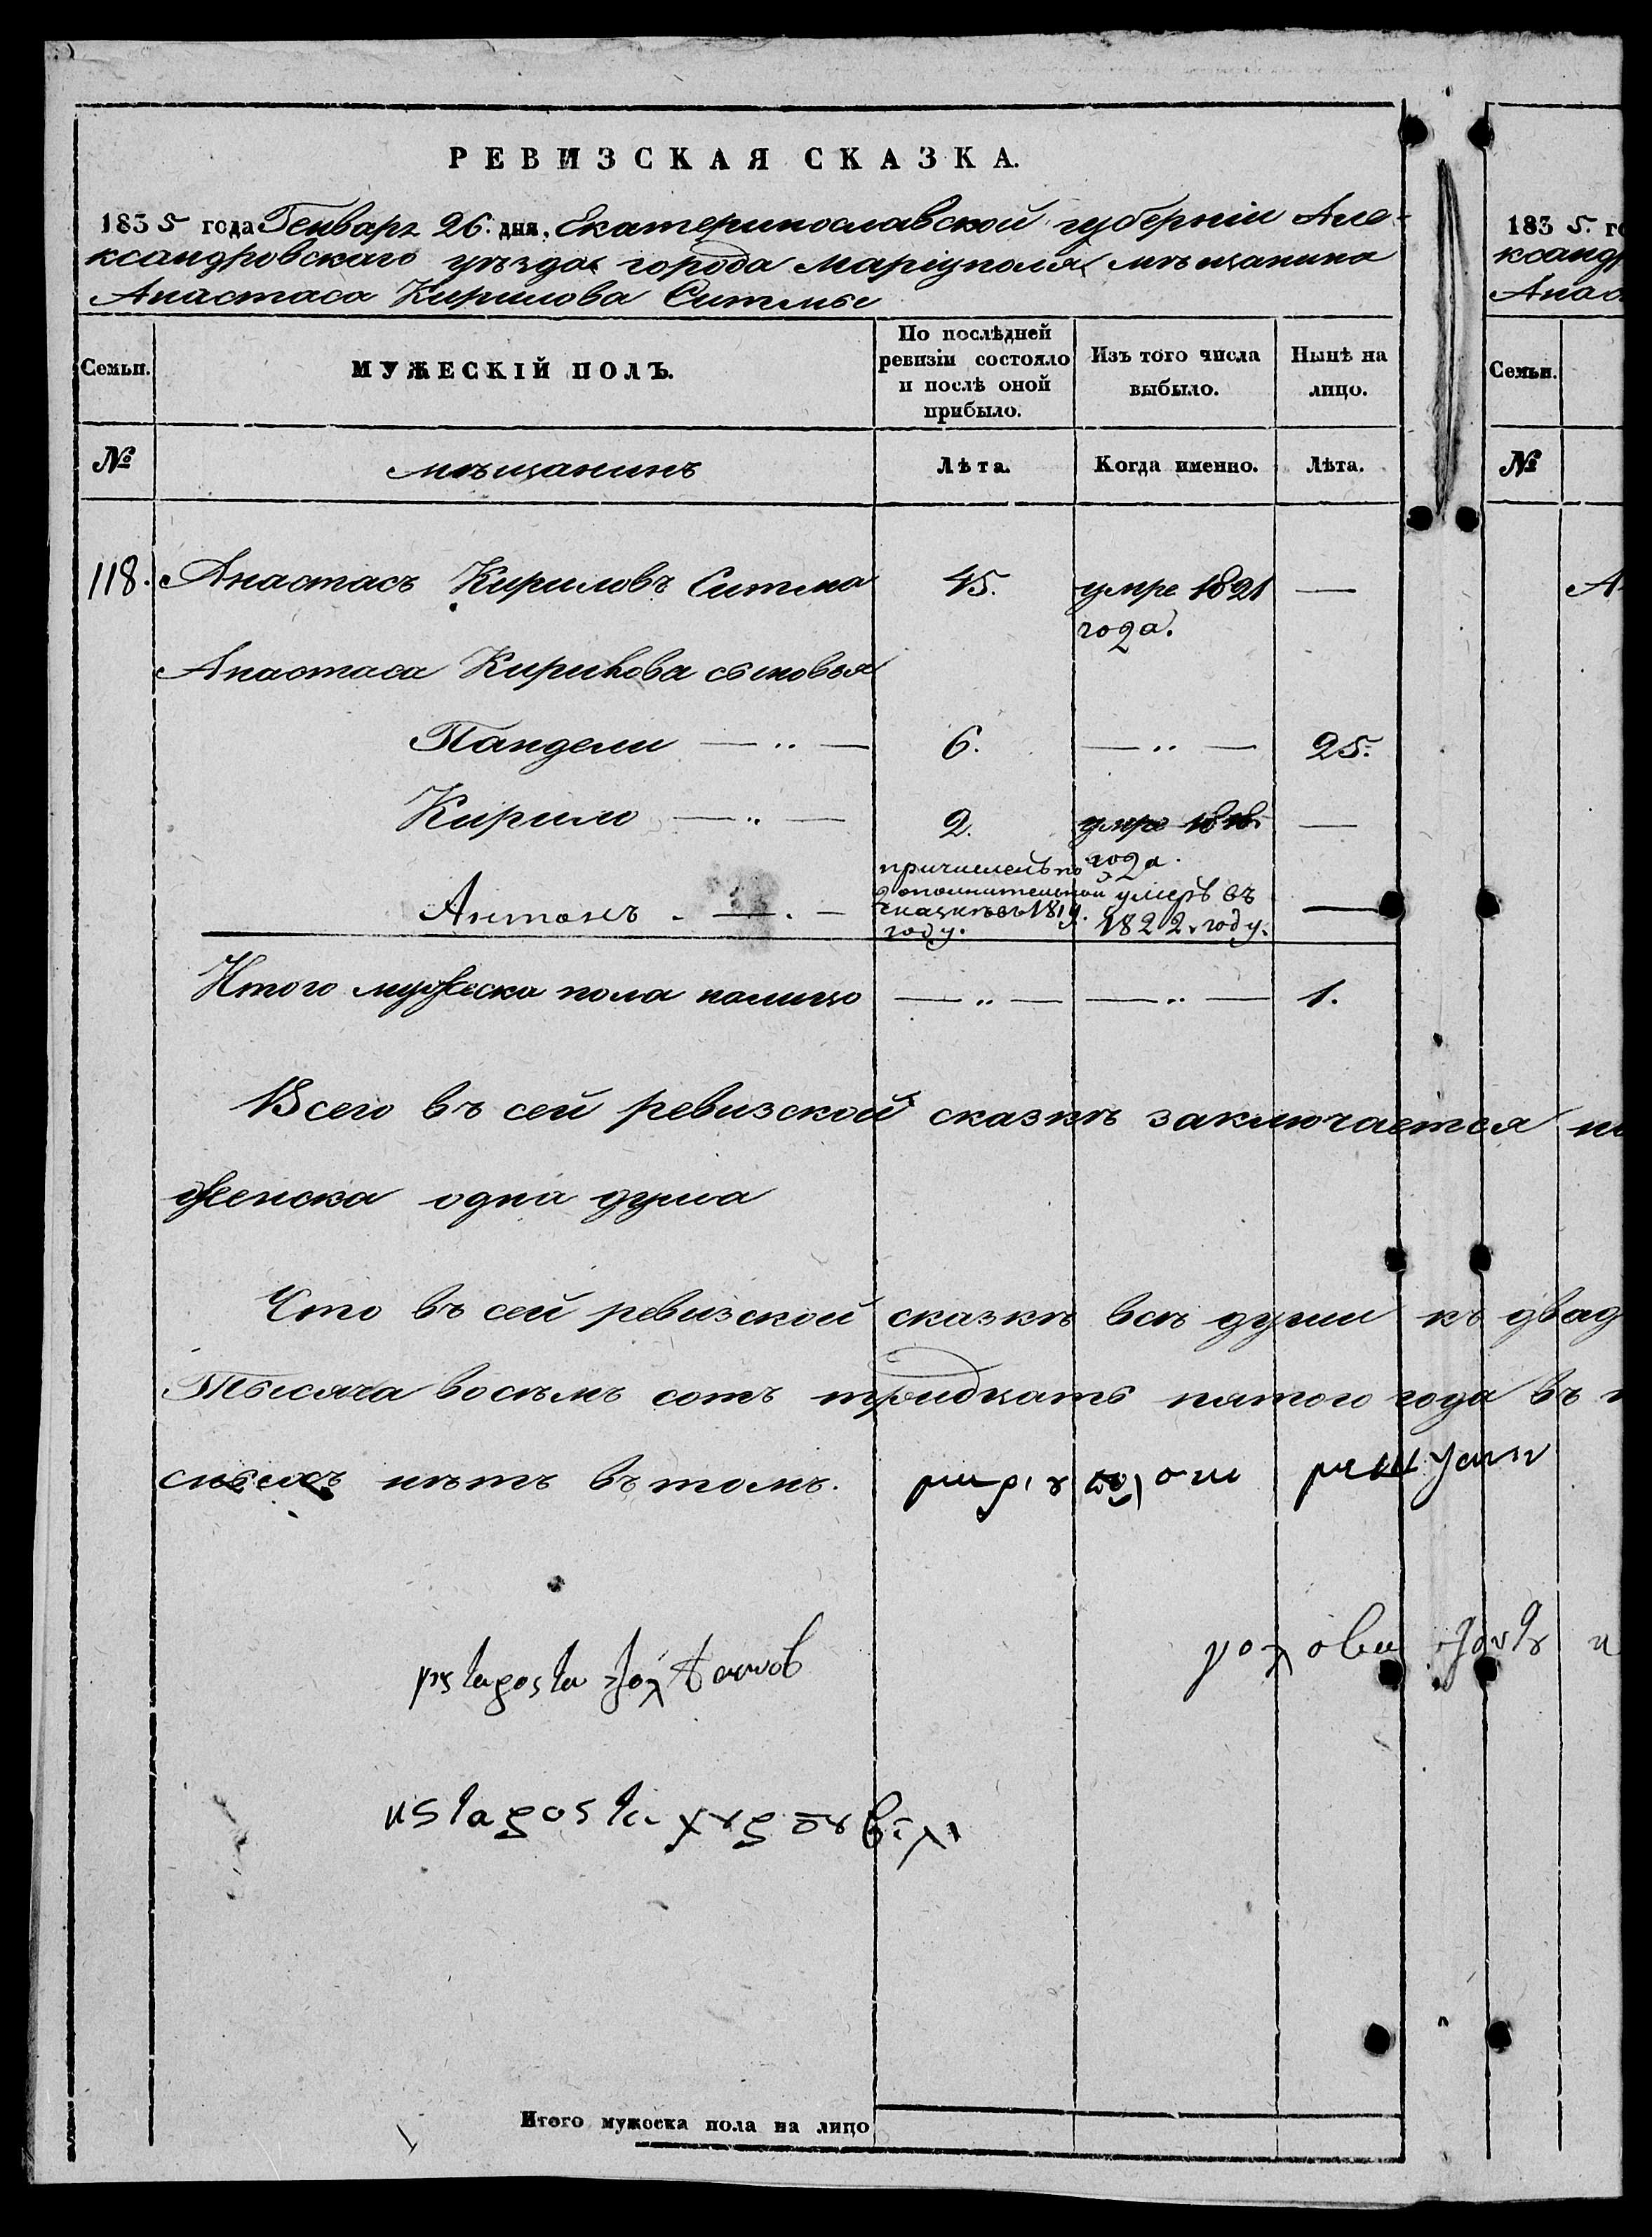 РЕВИЗСКАЯ СКАЗКА.
1835 года Генваря 26. дня, Екатеринославской губерніи Але-
ксандровскаго уѣзда города Маріуполя мѣщанина
Анастаса Кирилова Ситмы
Семьи. МУЖЕСКІЙ ПОЛЪ. По послѣдней ревизіи состояло и послѣ оной прибыло. Изъ того числа выбыло. Нынѣ на лицо.
№ мѣщанинъ Лѣта. Когда именно. Лѣта.
118. Анастасъ Кириловъ Ситма 45. умре 1821 года. —
Анастаса Кирилова сыновья
Пандели — „ — 6. — „ — 25.
Кирило — „ — 2. умре 1818 года. —
Антонъ — причисленъ по дополнительной сказкѣ въ 1819. году. умеръ въ 1822. году. —
Итого мужеска пола налицо — „ — — „ — 1.
Всего въ сей ревизской сказкѣ заключается
женска одна душа
Что въ сей ревизской сказкѣ всѣ души къ двад
Тысяча восемь сотъ тридцать пятого года въ
нѣтъ въ томъ.
Итого мужеска пола на лицо
1835. го
ксандр
Анас
Семьи.
№
А